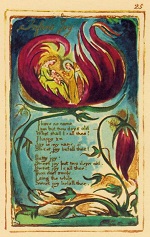 25
I have no name
I am but two days old.
What shall I call thee?
I happy am
Joy is my name,
Sweet joy befall thee!
Pretty joy!
Sweet joy but two days old,
Sweet joy I call thee:
Thou dost smile.
I sing the while
Sweet joy befall thee.